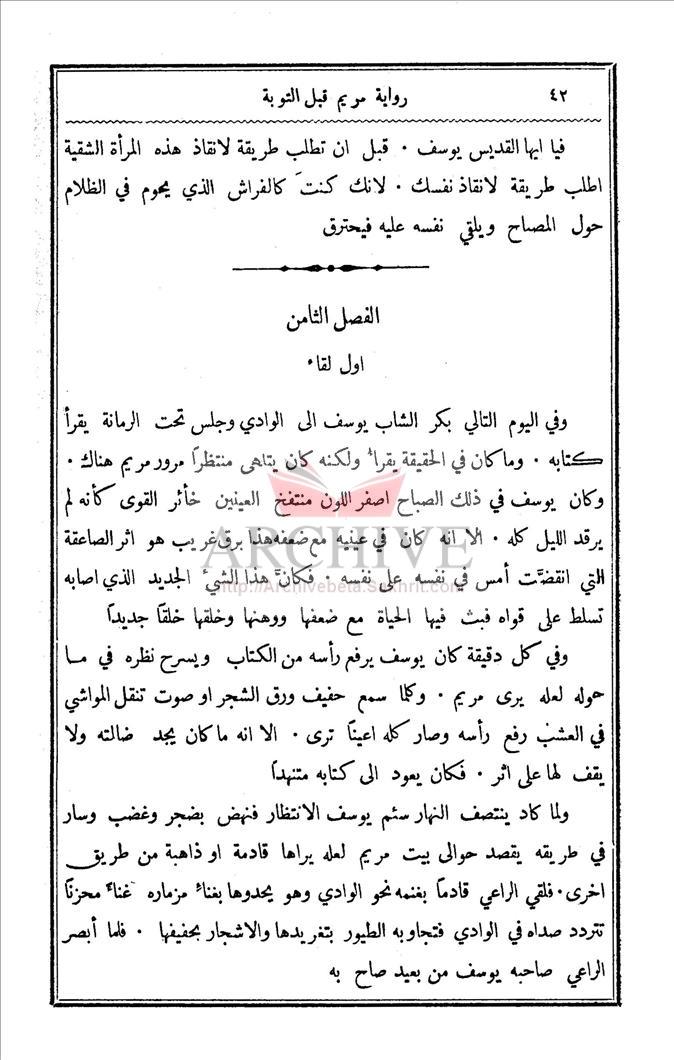 ٤٢ رواية مريم قبل التوبة
فيا ايها القديس يوسف . قبل ان تطلب طريقة لانقاذ هذه المرأة الشقية
اطلب طريقة لانقاذ نفسك . لانك كنتَ كالفراش الذي يحوم في الظلام
حول المصباح ويلقي نفسه عليه فيحترق
الفصل الثامن
اول لقاء
وفي اليوم التالي بكر الشاب يوسف الى الوادي وجلس تحت الرمانة يقرأ
كتابه . وما كان في الحقيقة يقرأ ولكنه كان يتاهى منتظرًا مرور مريم هناك .
وكان يوسف في ذلك الصباح اصفر اللون منتفخ العينين خأثر القوى كأنه لم
يرقد الليل كله . الا انه كان في عينيه مع ضعفه هذا برق غريب هو اثر الصاعقة
التي انقضَّت أمس في نفسه على نفسه . فكانَّ هذا الشيء الجديد الذي اصابه
تسلط على قواه فبث فيها الحياة مع ضعفها ووهنها وخلقها خلقًا جديدًا
وفي كل دقيقة كان يوسف يرفع رأسه من الكتاب ويسرح نظره في مـا
حوله لعله يرى مريم . وكلما سمع حفيف ورق الشجر او صوت تنقل المواشي
في العشب رفع رأسه وصار كله اعينًا ترى . الا انه ما كان يجد ضالته ولا
يقف لها على اثر . فكان يعود الى كتابه متنهدًا
ولما كاد ينتصف النهار سئم يوسف الانتظار فنهض بضجر وغضب وسار
في طريقه يقصد حوالى بيت مريم لعله يراها قادمة او ذاهبة من طريق
اخرى . فلقي الراعي قادمًا بغنمه نحو الوادي وهو يحدوها بغناء مزماره غناءً محزنًا
تتردد صداه في الوادي فتجاوبه الطيور بتغريدها والاشجار بحفيفها . فلما أبصر
الراعي صاحبه يوسف من بعيد صاح به
ARCHIVE
http://Archivebeta.Sakhrit.com